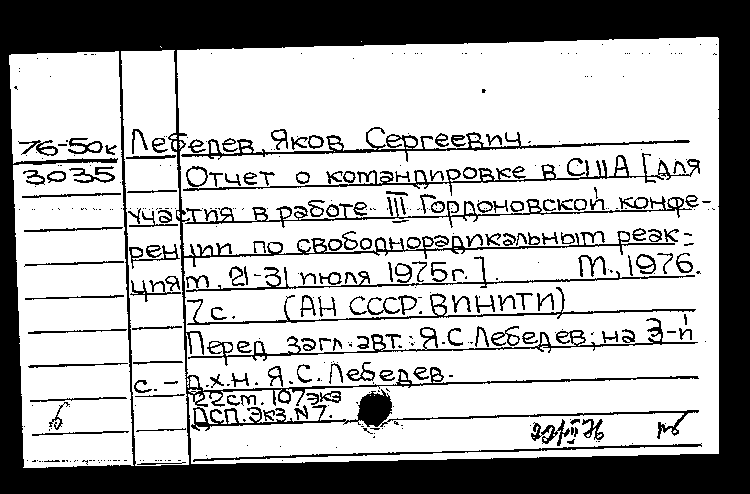 76-50к Лебедев, Яков Сергеевич.
3035 Отчет о командировке в США [для
участия в работе III Гордоновской конфе-
ренции по свободнорадикальным реак-
циям. 21-31 июля 1975г.]. М., 1976.
7с. (АН СССР. ВИНИТИ)
Перед загл. авт.: Я.С. Лебедев; на 3-й
с. - д.х.н. Я.С. Лебедев.
22ст. 107экз
ДСП. Экз. N 7.